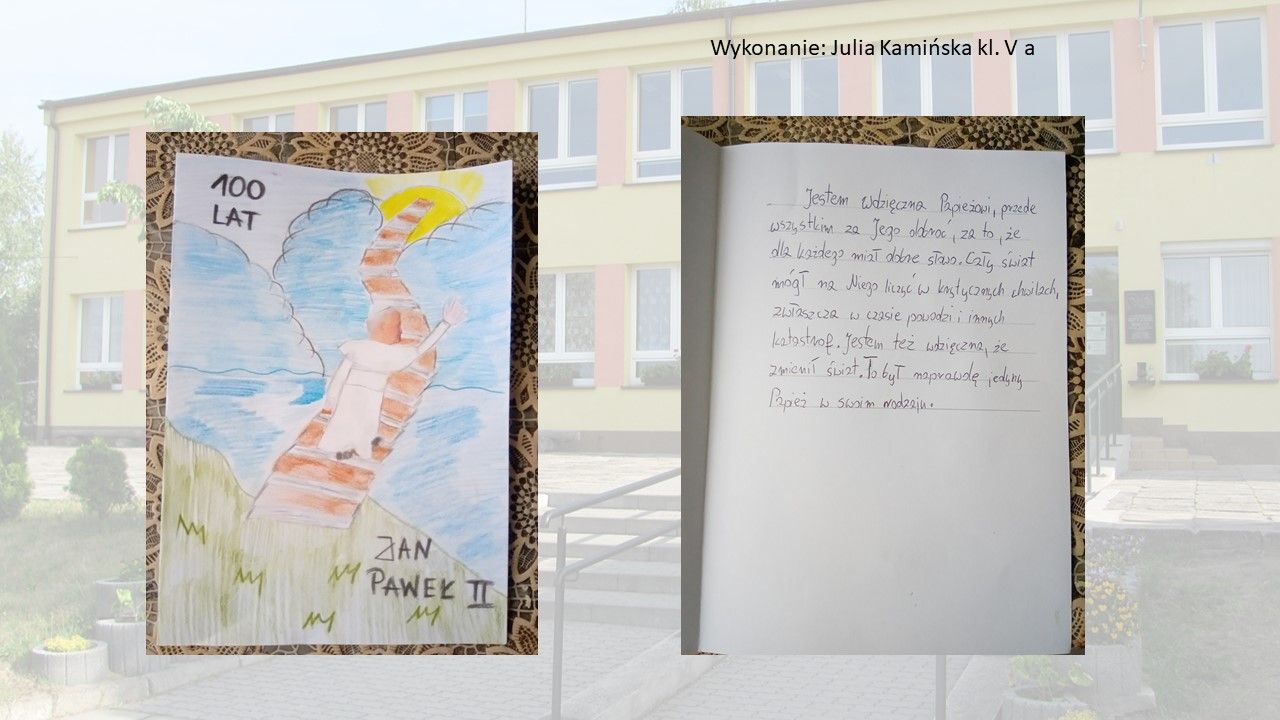 Wykonanie: Julia Kamińska kl. V a
100
LAT
JAN
PAWEŁ II
Jestem wdzięczna Papieżowi, przede
wszystkim za Jego dobroć, za to, że
dla każdego miał dobre słowo. Cały świat
mógł na Niego liczyć w krytycznych chwilach,
zwłaszcza w czasie powodzi i innych
katastrof. Jestem też wdzięczna, że
zmienił świat. To był naprawdę jedyny
Papież w swoim rodzaju.